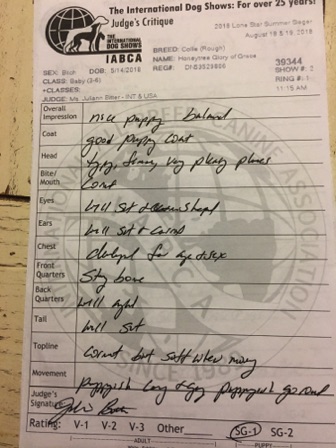 The International Dog Shows: For over 25 years!
Judge's Critique
2018 Lone Star Summer Sieger
August 18 & 19, 2018
THE INTERNATIONAL DOG SHOWS
IABCA
BREED: Collie (Rough)
NAME: Honeytree Glory of Grace
SEX: Bitch DOB: 5/14/2018 REG#:
39344
CLASS: Baby (3-6) SHOW #: 2
+CLASSES: RING #: 1
JUDGE: Ms. Juliann Bitter - INT & USA 11:15 AM
Overall Impression nice puppy balanced
Coat good puppy coat
Head very planes
Bite/Mouth Correct
Eyes Well set &
Ears Well set & carried
Chest developed for age & sex
Front Quarters bone
Back Quarters Well
Tail Well set
Topline correct but soft when moving
Movement puppyish
Judge's Signature
Rating: V-1 V-2 V-3 Other SG-1 SG-2
ADULT PUPPY